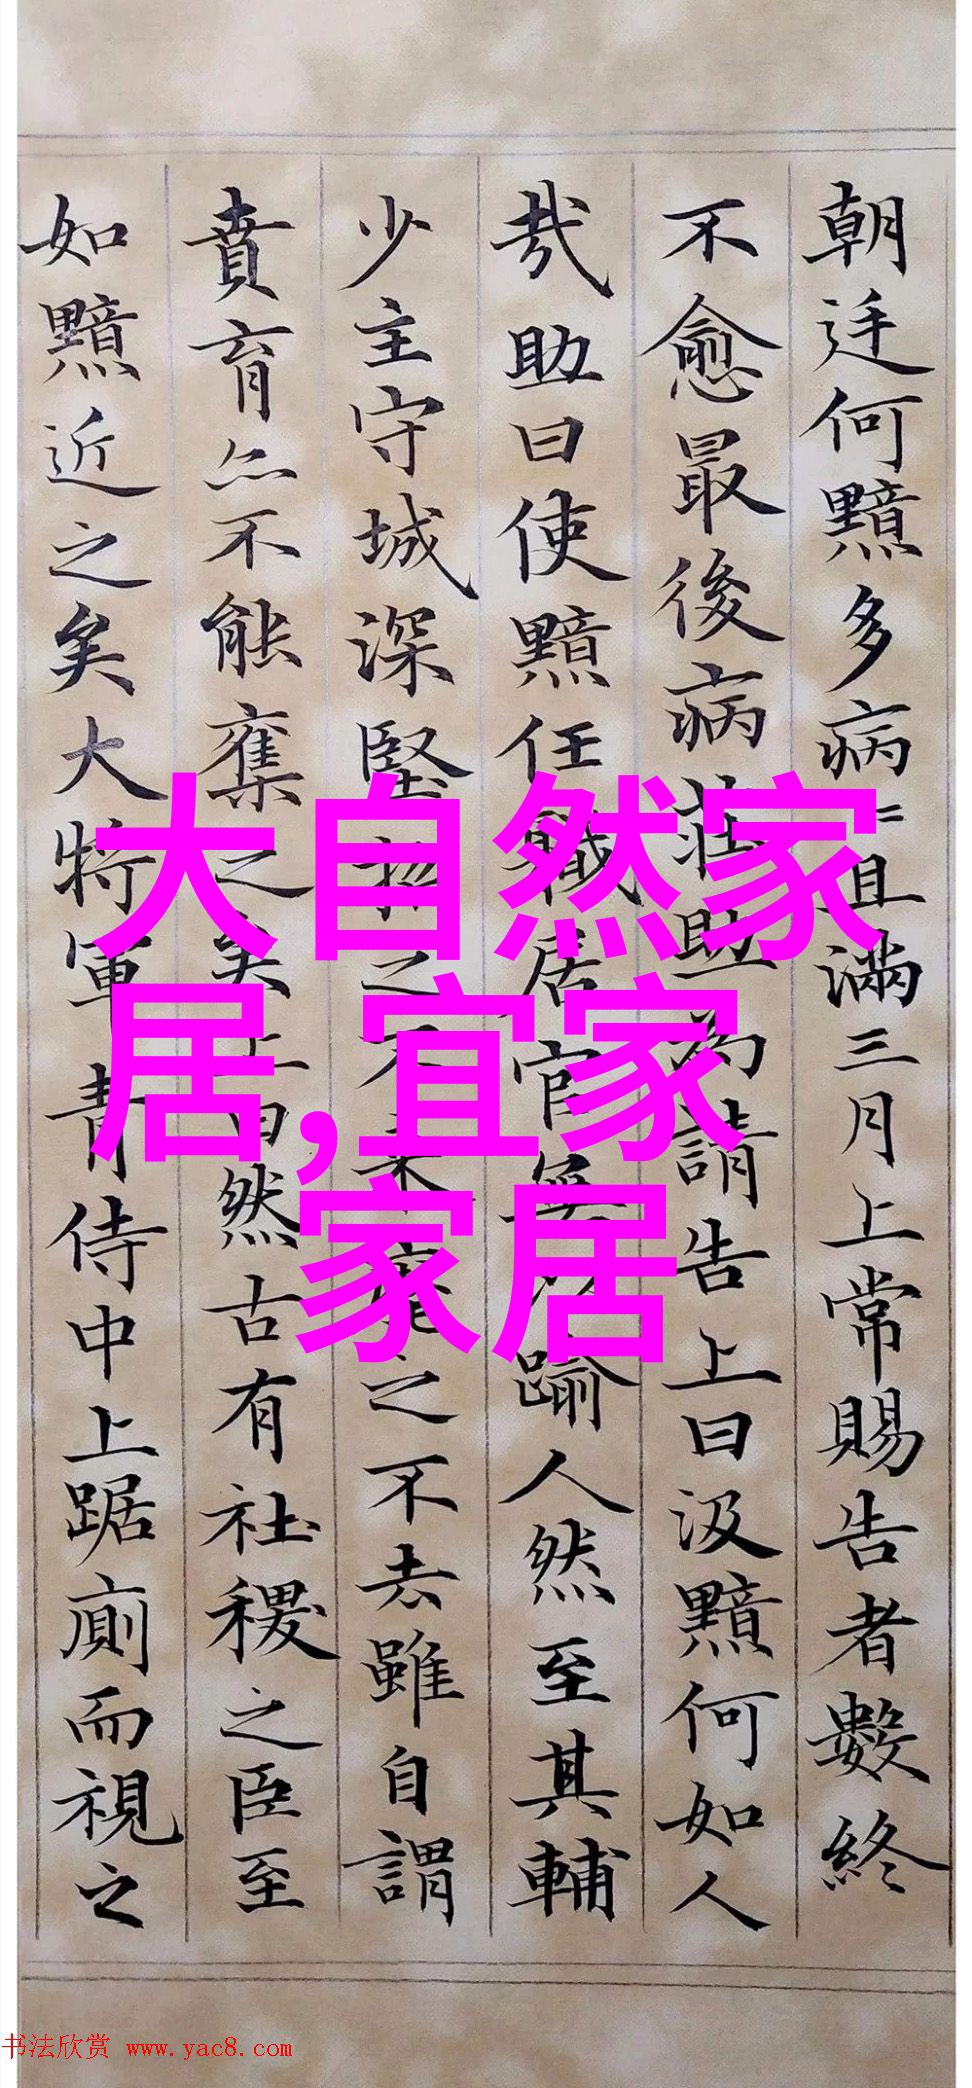 朝廷何黯多病病且滿三月上常賜告者數終
不愈最後病莊助為請告上曰汲黯何如人
哉助曰使黯任職居官無以踰人然至其輔
少主守城深堅招之不來麾之不去雖自謂
賁育亦不能奪之矣上曰然古有社稷之臣至
如黯近之矣大將軍青侍中上踞廁而視之
大自然家
居,宜家
家居
书法欣赏 www.yac8.com